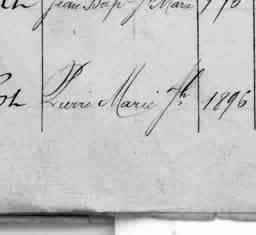 Jean Bapt. J. Marie
Pierre Marie Jh. 1896